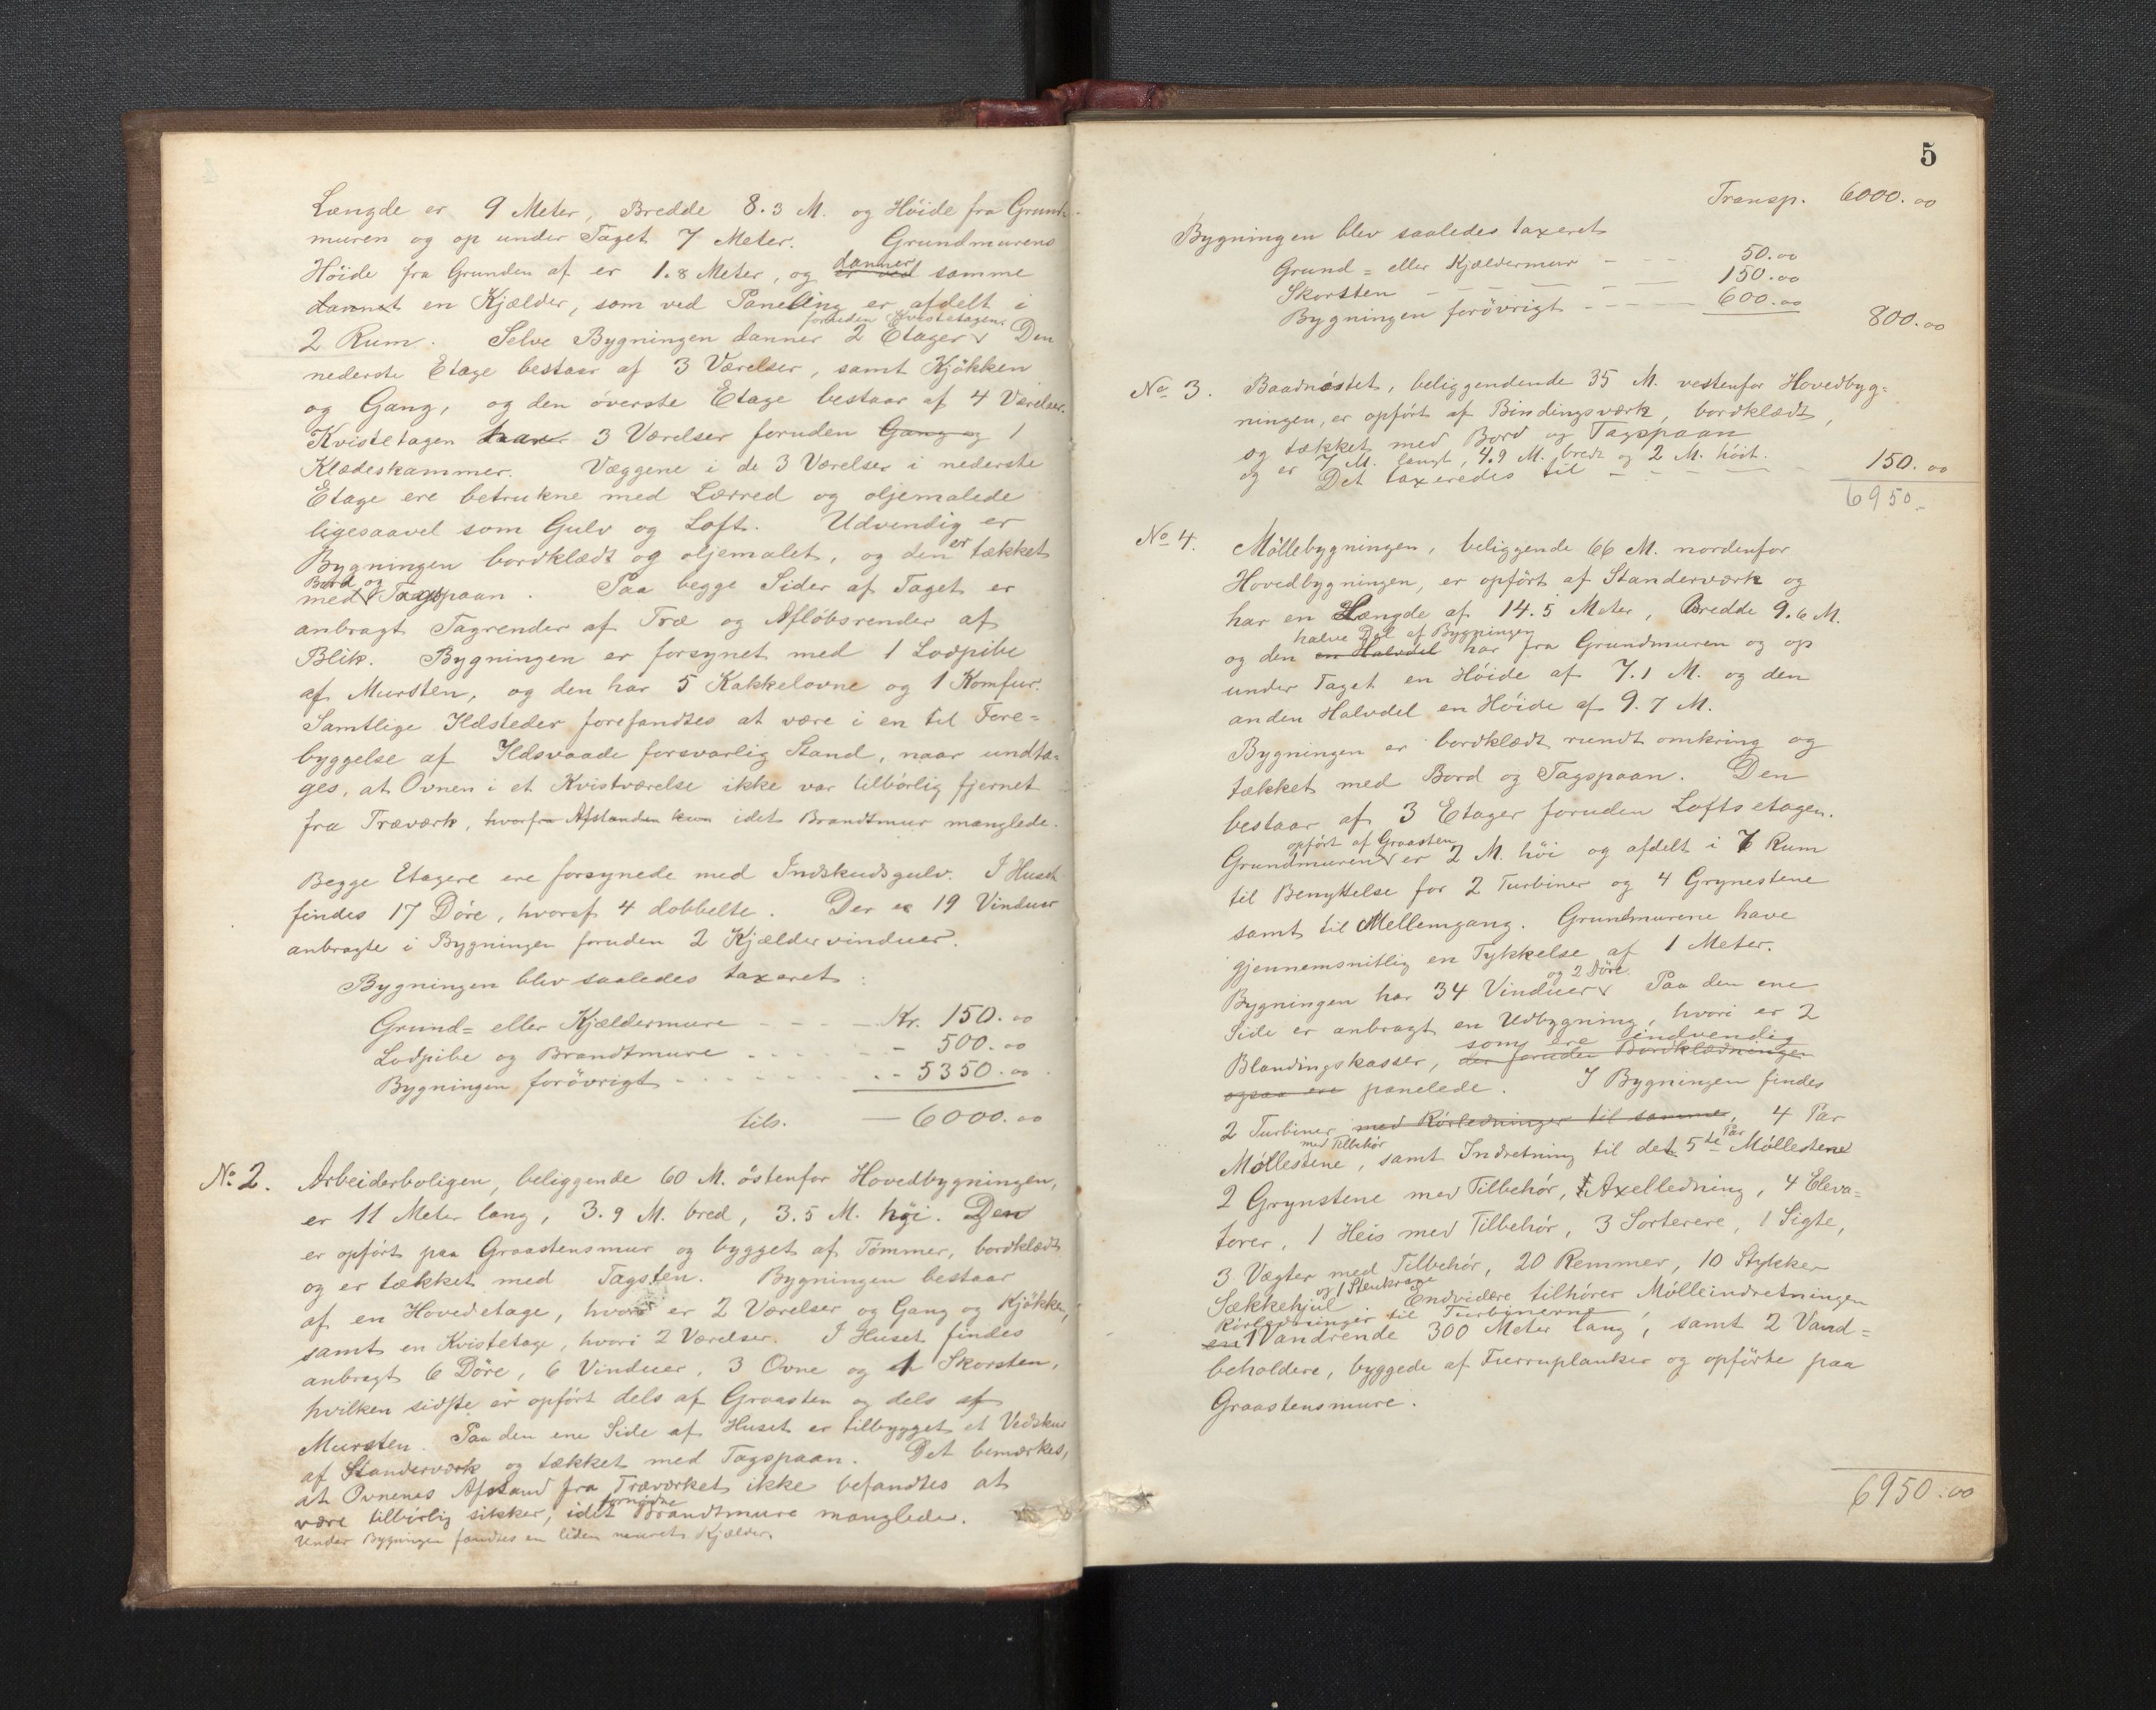 Længde er 9 Meter, Bredde 8.3 M. og Höide fra Grund-
muren og op under Taget 7 Meter. Grundmurens
danner
Höide fra Grunden af er 1.8 Meter, og er ved samme
dannet en Kjælder, som ved Paneling er afdelt i
foruden Kvistetagen.
2 Rum. Selve Bygningen danner 2 Etager Den
nederste Etage bestaar af 3 Værelser, samt Kjökken
og Gang, og den överste Etage bestaar af 4 Værelser.
Kvistetagen har 3 Værelser foruden Gang og 1
Klædeskammer. Væggene i de 3 Værelser i nederste
Etage ere betrukne med Lærred og oljemalede
ligesaavel som Gulv og Loft. Udvendig er
Bygningen bordklædt og oljemalet, og den er tækket
Bord og
med Tagspaan. Paa begge Sider af Taget er
anbragt Tagrender af Træ og Aflöbsrender af
Blik. Bygningen er forsynet med 1 Lodpibe
af Mursten, og den har 5 Kakkelovne og 1 Komfur.
Samtlige Ildsteder forefandtes at være i en til Fore=
byggelse af Ildsvaade forsvarlig Stand, naar undta-
ges, at Ovnen i et Kvistværelse ikke var tilbörlig fjernet
fra Træværk, hvorfra Afstanden kun idet Brandtmur manglede.
Begge Etagere ere forsynede med Indskudsgulv. I Huset
findes 17 Döre, hvoraf 4 dobbelte. Der er 19 Vinduer
anbragte i Bygningen foruden 2 Kjældervinduer.
Bygningen blev saaledes taxeret:
Grund= eller Kjældermure - - - - Kr. 150.00
Lodpibe og Brandtmure - - - - - 500.00
Bygningen forövrigt - - - - - - 5350.00
tils. — 6000.00
No 2. Arbeiderboligen, beliggende 60 M. östenfor Hovedbygningen,
er 11 Meter lang, 3.9 M. bred, 3.5 M. höi. Den
er opfört paa Graastensmur og bygget af Tömmer, bordklædt
og er tækket med Tagsten. Bygningen bestaar
af en Hovedetage, hvori er 2 Værelser og Gang og Kjökken,
samt en Kvistetage, hvori 2 Værelser. I Huset findes
anbragt 6 Döre, 6 Vinduer, 3 Ovne og 1 Skorsten,
hvilken sidste er opfört dels af Graasten og dels af
Mursten. Paa den ene Side af Huset er tilbygget et Vedskur
af Standerværk og tækket med Tagspaan. Det bemærkes,
at Ovnenes Afstand fra Træværket ikke befandtes at
fornödne
være tilbörlig sikker, idet Brandtmure manglede.
Under Bygningen fandtes en liden muret Kjælder.
5
Transp. 6000.00
Bygningen blev saaledes taxeret
Grund= eller Kjældermur - - - 50.00
Skorsten - - - - - - 150.00
Bygningen forövrigt - - - - 600.00
800.00
No 3. Baadnöstet, beliggendende 35 M. vestenfor Hovedbyg=
ningen, er opfört af Bindingsværk, bordklædt,
og tækket med Bord og Tagspaan
og er 7 M. langt, 4.9 M. bredt og 2 M. höit.
Det taxeredes til - - - - 150.00
6950.-
No 4. Möllebygningen, beliggende 66 M. nordenfor
Hovedbygningen, er opfört af Standerværk og
har en Længde af 14.5 Meter, Bredde 9.6 M.
halve Del af Bygningen
og den en Halvdel har fra Grundmuren og op
under Taget en Höide af 7.1 M. og den
anden Halvdel en Höide af 9.7 M.
Bygningen er bordklædt rundt omkring og
tækket med Bord og Tagspaan. Den
bestaar af 3 Etager foruden Loftsetagen.
opfört af Graasten
Grundmuren er 2 M. höi og afdelt i 7 Rum
til Benyttelse for 2 Turbiner og 4 Grynestene
samt til Mellemgang. Grundmurene have
gjennemsnitlig en Tykkelse af 1 Meter.
og 2 Döre.
Bygningen har 34 Vinduer Paa den ene
Side er anbragt en Udbygning, hvori er 2
som ere indvendig
Blandingskasser, der foruden Bordklædningen
ogsaa ere panelede. I Bygningen findes
2 Turbiner med Rörledninger til samme, 4 Par
med Tilbehör Par
Möllestene, samt Indretning til det 5te Möllestene
2 Grynstene med Tilbehör, Axelledning, 4 Eleva=
torer, 1 Heis med Tilbehör, 3 Sorterere, 1 Sigte,
3 Vægter med Tilbehör, 20 Remmer, 10 Stykker
og 1 Stenkrane
Sækkehjul Endvidere tilhörer Mölleindretningen
Rörledninger til Turbinerne
en 1 Vandrende 300 Meter lang, samt 2 Vand=
beholdere, byggede af Furruplanker og opförte paa
Graastensmure.
6950.00